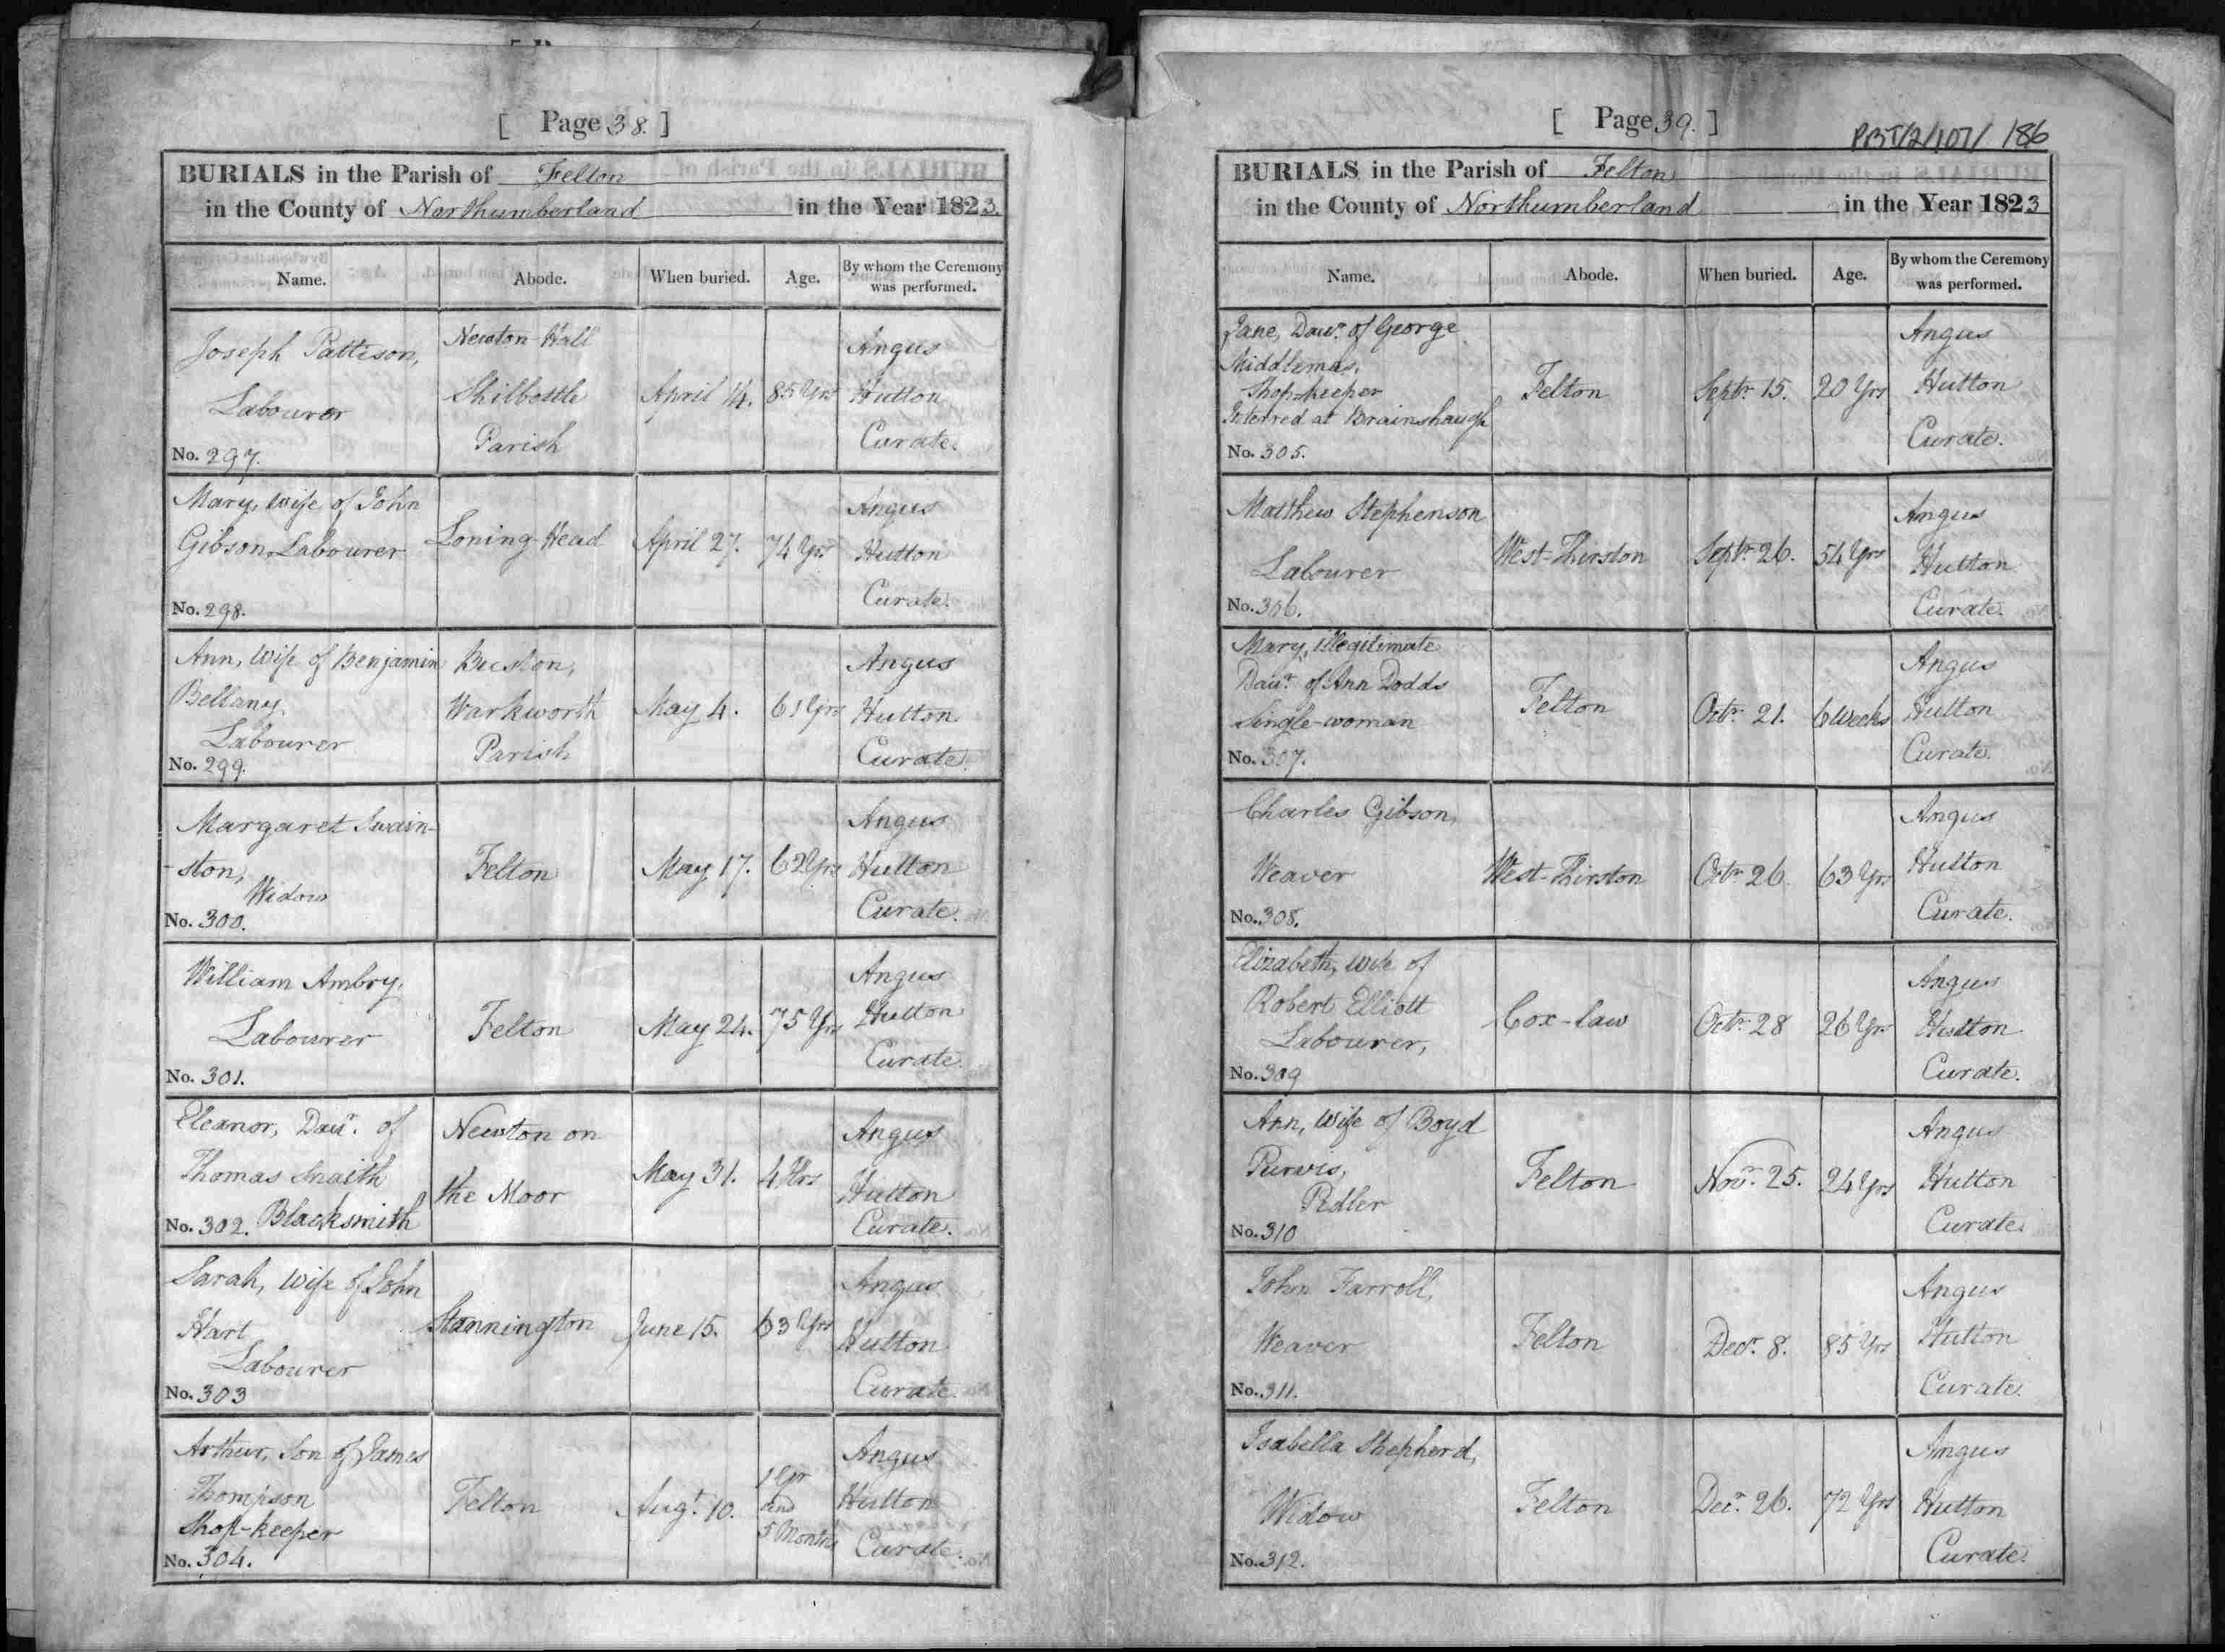 [ Page 38. ]
BURIALS in the Parish of Felton
in the County of Northumberland in the Year 1823.
Name. Abode. When buried. Age. By whom the Ceremony was performed.
Joseph Pattison,
Labourer
No. 297.
Newton Hall
Shilbottle
Parish
April 14.
85 Yrs
Angus
Hutton
Curate.
Mary, wife of John
Gibson, Labourer
No. 298.
Loning-Head
April 27.
74 Yrs
Angus
Hutton
Curate.
Ann, Wife of Benjamin
Bellany
Labourer
No. 299.
Warkworth
Parish
May 4.
61 Yrs
Angus
Hutton
Curate.
Margaret Swain-
-ston,
Widow
No. 300.
Felton
May 17.
62 Yrs
Angus
Hutton
Curate.
William Ambry,
Labourer
No. 301.
Felton
May 24.
75 Yrs
Angus
Hutton
Curate.
Eleanor, Daur. of
Thomas Snaith
No. 302. Blacksmith
Newton on
the Moor
May 31.
4 Hrs
Angus
Hutton
Curate.
Sarah, Wife of John
Hart
Labourer
No. 303
Stannington
June 15.
63 Yrs
Angus
Hutton
Curate.
Arthur, Son of James
Thompson
Shop-keeper
No. 304.
Felton
Augt. 10.
1 Yr
and
5 Months
Angus
Hutton
Curate.
[ Page 39. ]
PBT/2/107/ 186
BURIALS in the Parish of Felton
in the County of Northumberland in the Year 1823
Name. Abode. When buried. Age. By whom the Ceremony was performed.
Jane, Daur. of George
Middlemas,
Shopkeeper
Interred at Brainshaugh
No. 305.
Felton
Septr. 15.
20 Yrs
Angus
Hutton
Curate.
Matthew Stephenson
Labourer
No. 306.
West-Thirston
Septr. 26.
54 Yrs
Angus
Hutton
Curate.
Mary, Illegitimate
Daur. of Ann Dodds
Single-woman
No. 307.
Felton
Octr. 21.
6 Weeks
Angus
Hutton
Curate.
Charles Gibson,
Weaver
No. 308.
West-Thirston
Octr. 26
63 Yrs
Angus
Hutton
Curate.
Elizabeth, wife of
Robert Elliott
Labourer,
No. 309
Cox-law
Octr. 28
26 Yrs
Angus
Hutton
Curate.
Ann, Wife of Boyd
Purvis,
Pedler
No. 310
Felton
Novr. 25.
24 Yrs
Angus
Hutton
Curate.
John Farroll,
Weaver
No. 311.
Felton
Decr. 8.
85 Yrs
Angus
Hutton
Curate.
Isabella Shepherd,
Widow
No. 312.
Felton
Decr. 26.
72 Yrs
Angus
Hutton
Curate.